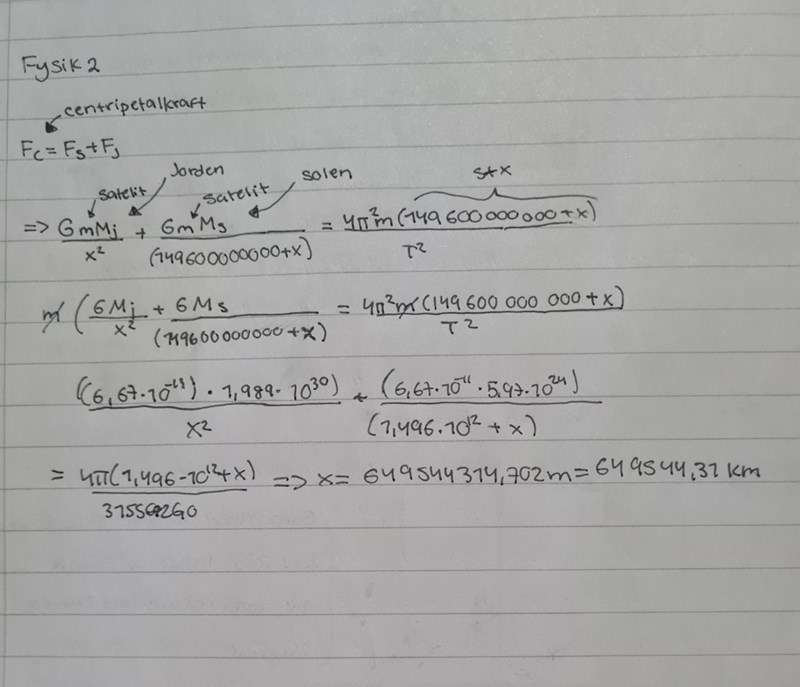 Fysik 2
centripetalkraft
F_c = F_s + F_j
satelit Jorden satelit solen s+x
=> GmMj/x² + GmMs/(149600000000+x) = 4π²m(149600000000+x)/T²
m(GMj/x² + GMs/(149600000000+x) = 4π²m(149 600 000 000 + x)/T²
((6,67·10⁻¹¹)·1,989·10³⁰)/x² + (6,67·10⁻¹¹·5,97·10²⁴)/(1,496·10¹²+x)
= 4π(1,496·10¹²+x)/ => x = 649544314,702m = 649544,31 km